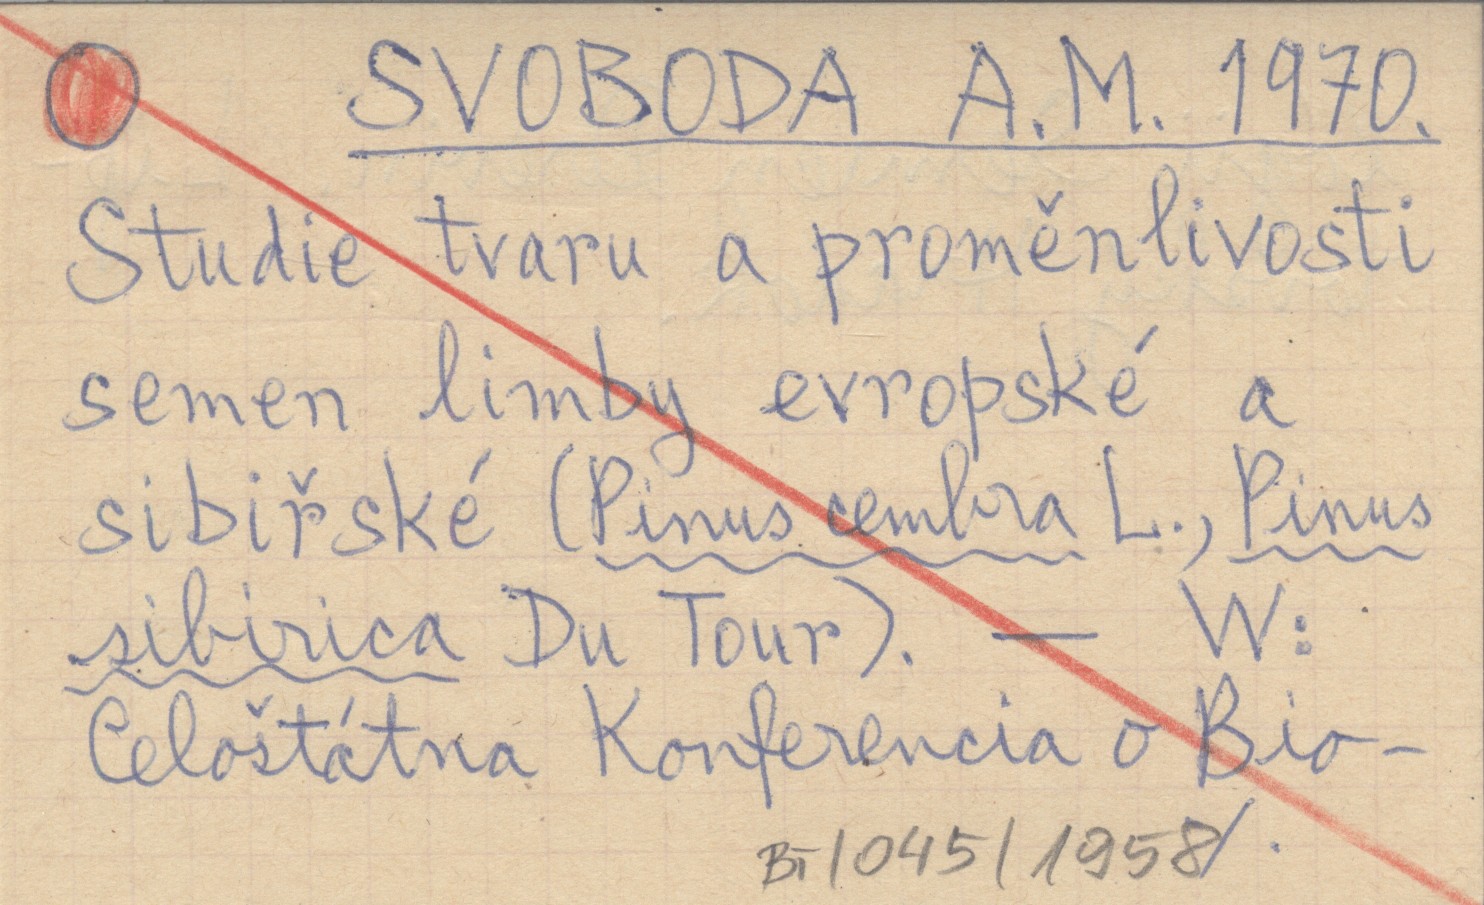 SVOBODA A.M. 1970.
Studie tvaru a proměnlivosti
semen limby evropské a
sibiřské (Pinus cembra L., Pinus
sibirica Du Tour). — W:
Celoštátna Konferencia o Bio-
/.
BI/045/1958